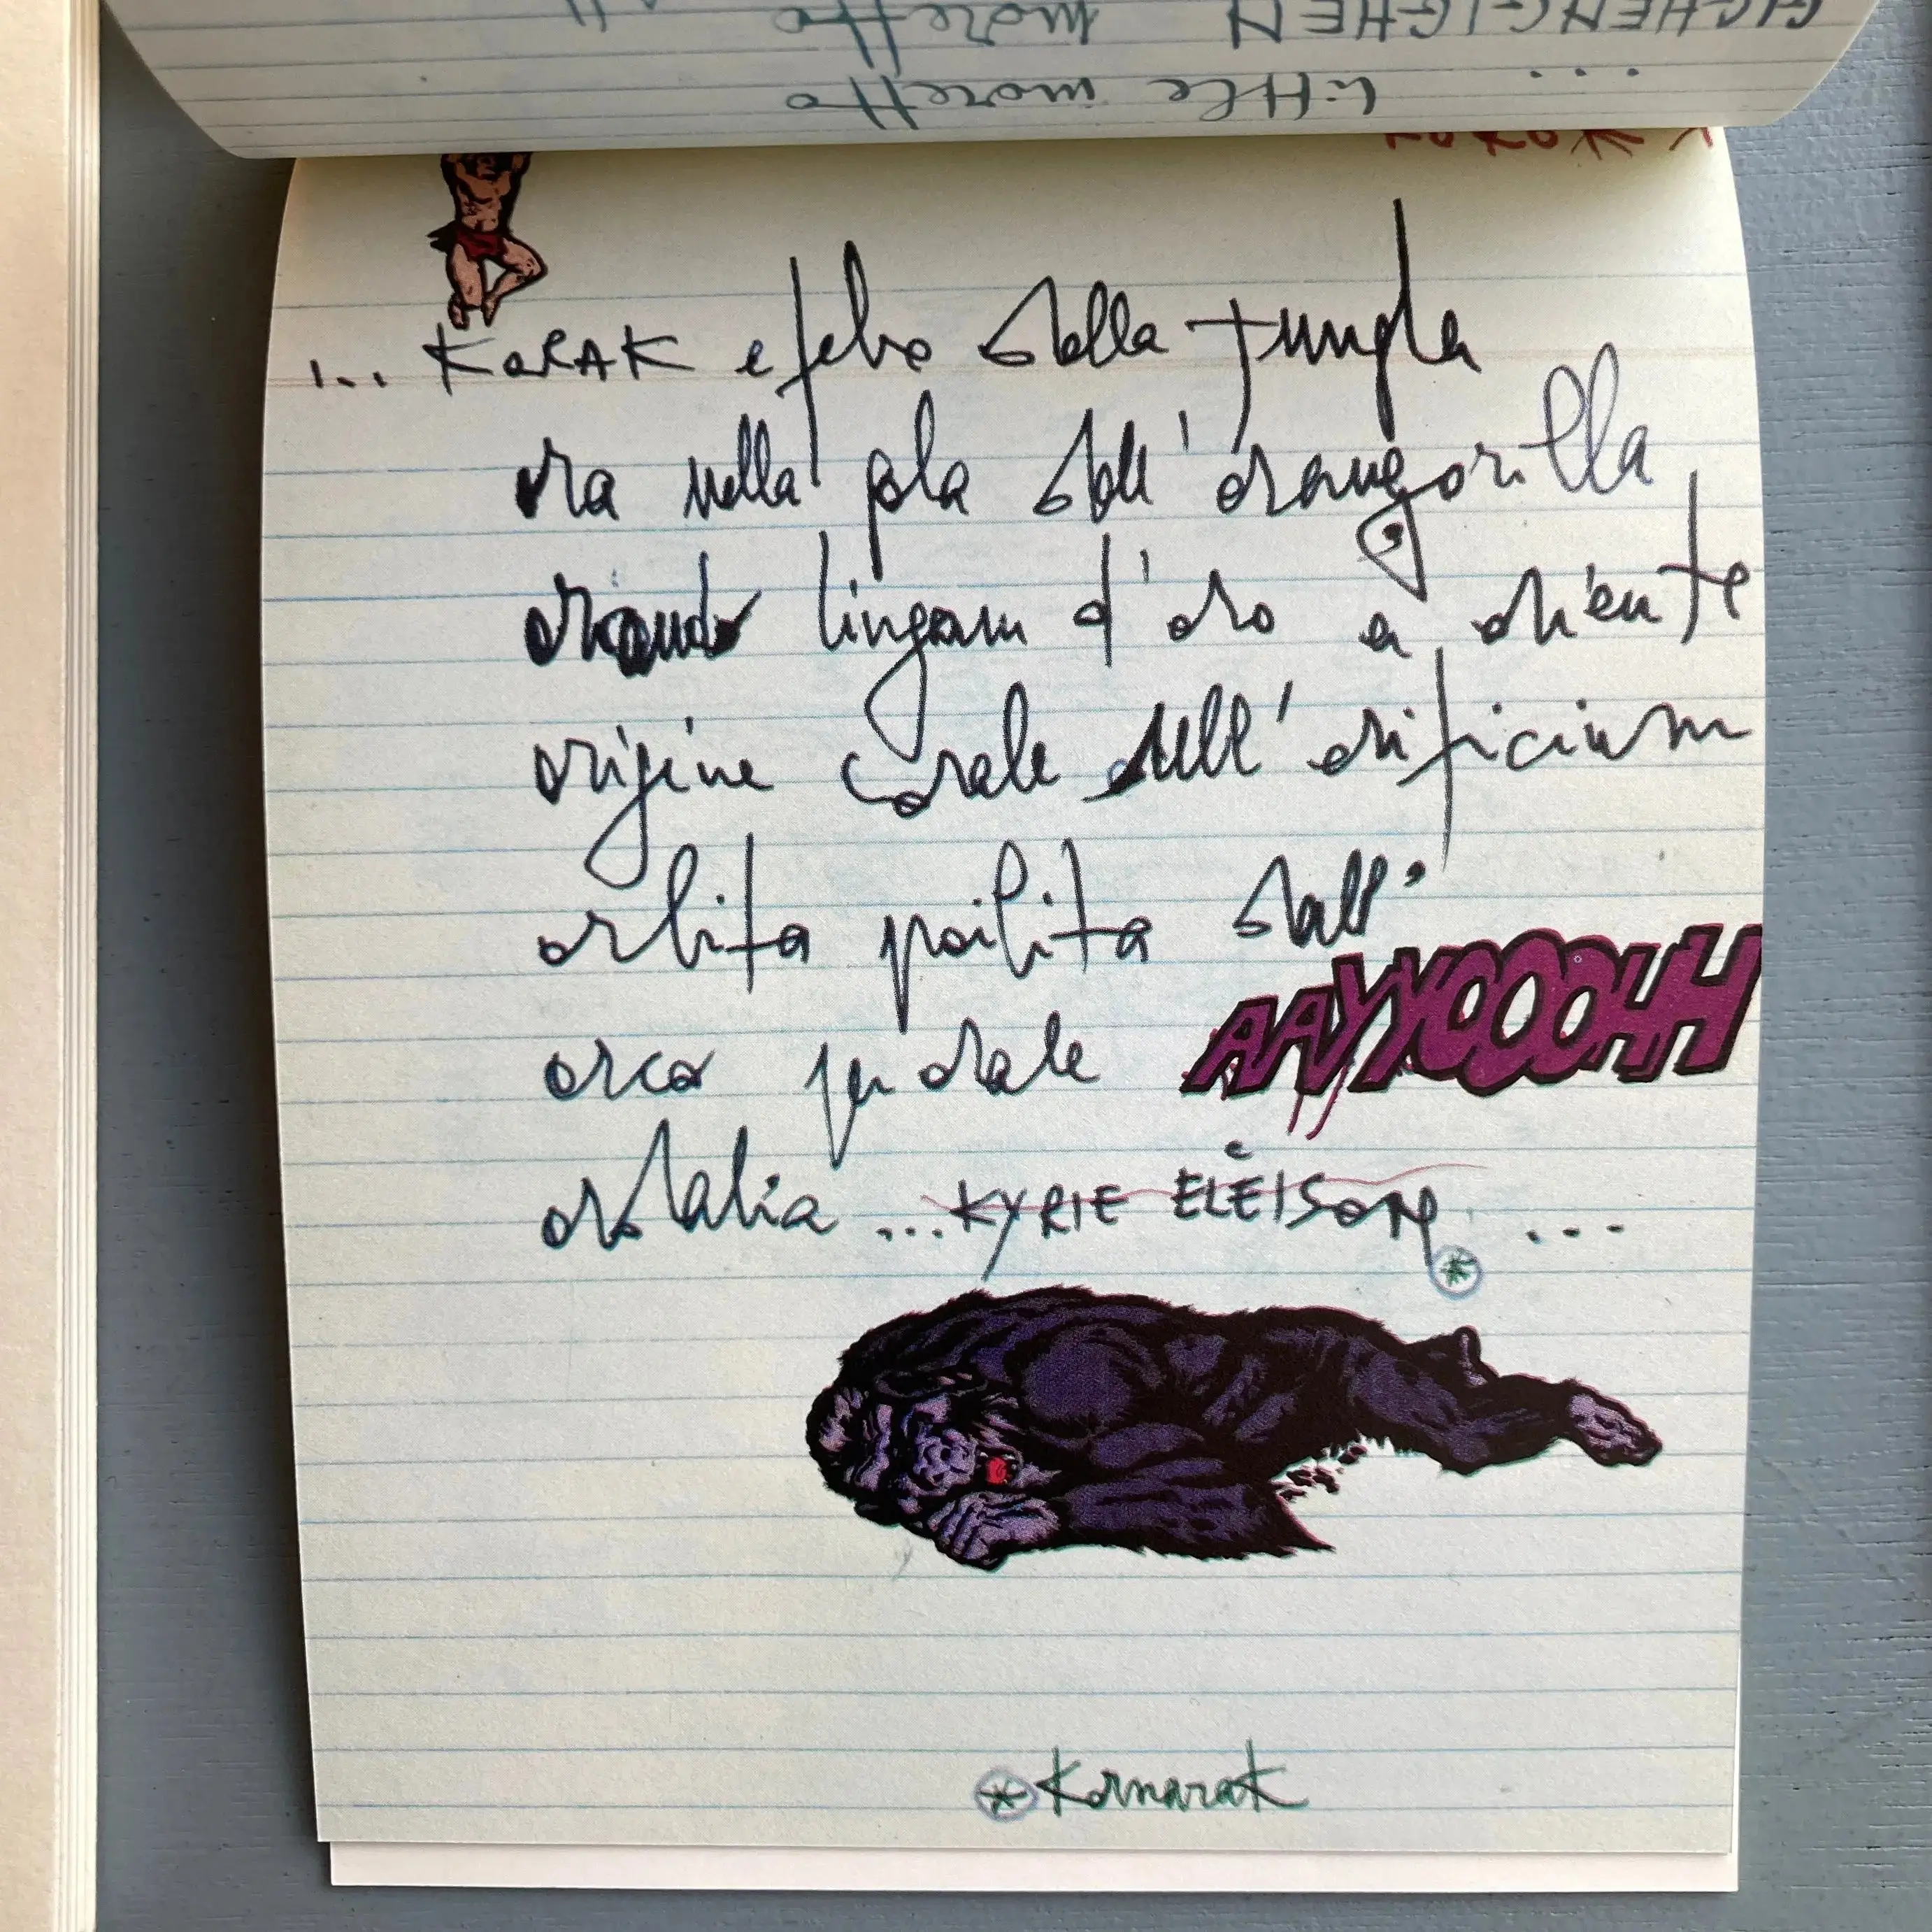 little moretto
...
GICHENGICHEN moretto
... KORAK efebo della jungla
ora nella gola dell' orangorilla
orando lingam d'oro a oriente
origine corale dell' orificium
orbita proibita dall'
orco per orale AAYYOOOHH
ordalia ... KYRIE ELĒISON ...
* Kornarak